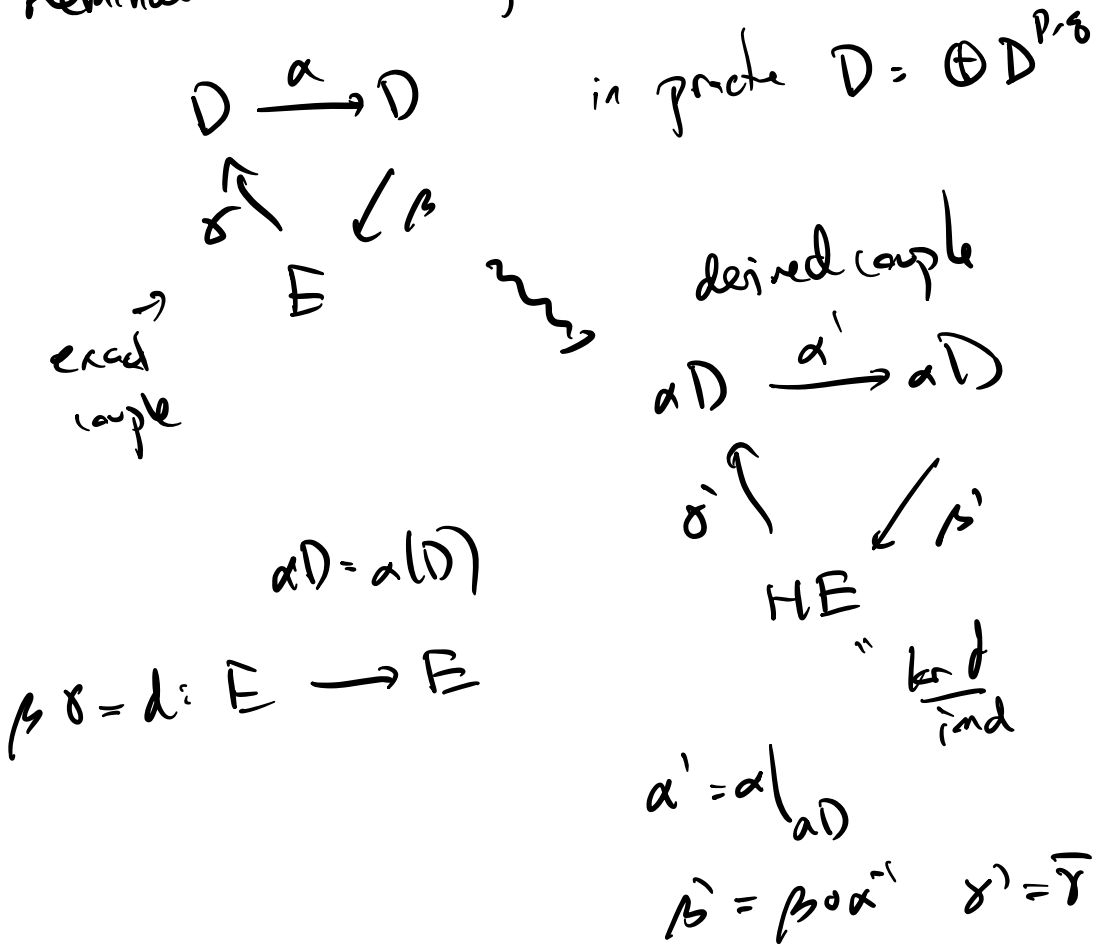 D α→ D
in practe D = ⊕ D^{p,q}
γ β
E
exact
couple
derived couple
αD α'→ αD
γ' β'
HE
" ker d / im d
αD = α(D)
βγ = d: E → E
α' = α|_{αD}
β' = β∘α^{-1} γ' = \overline{γ}